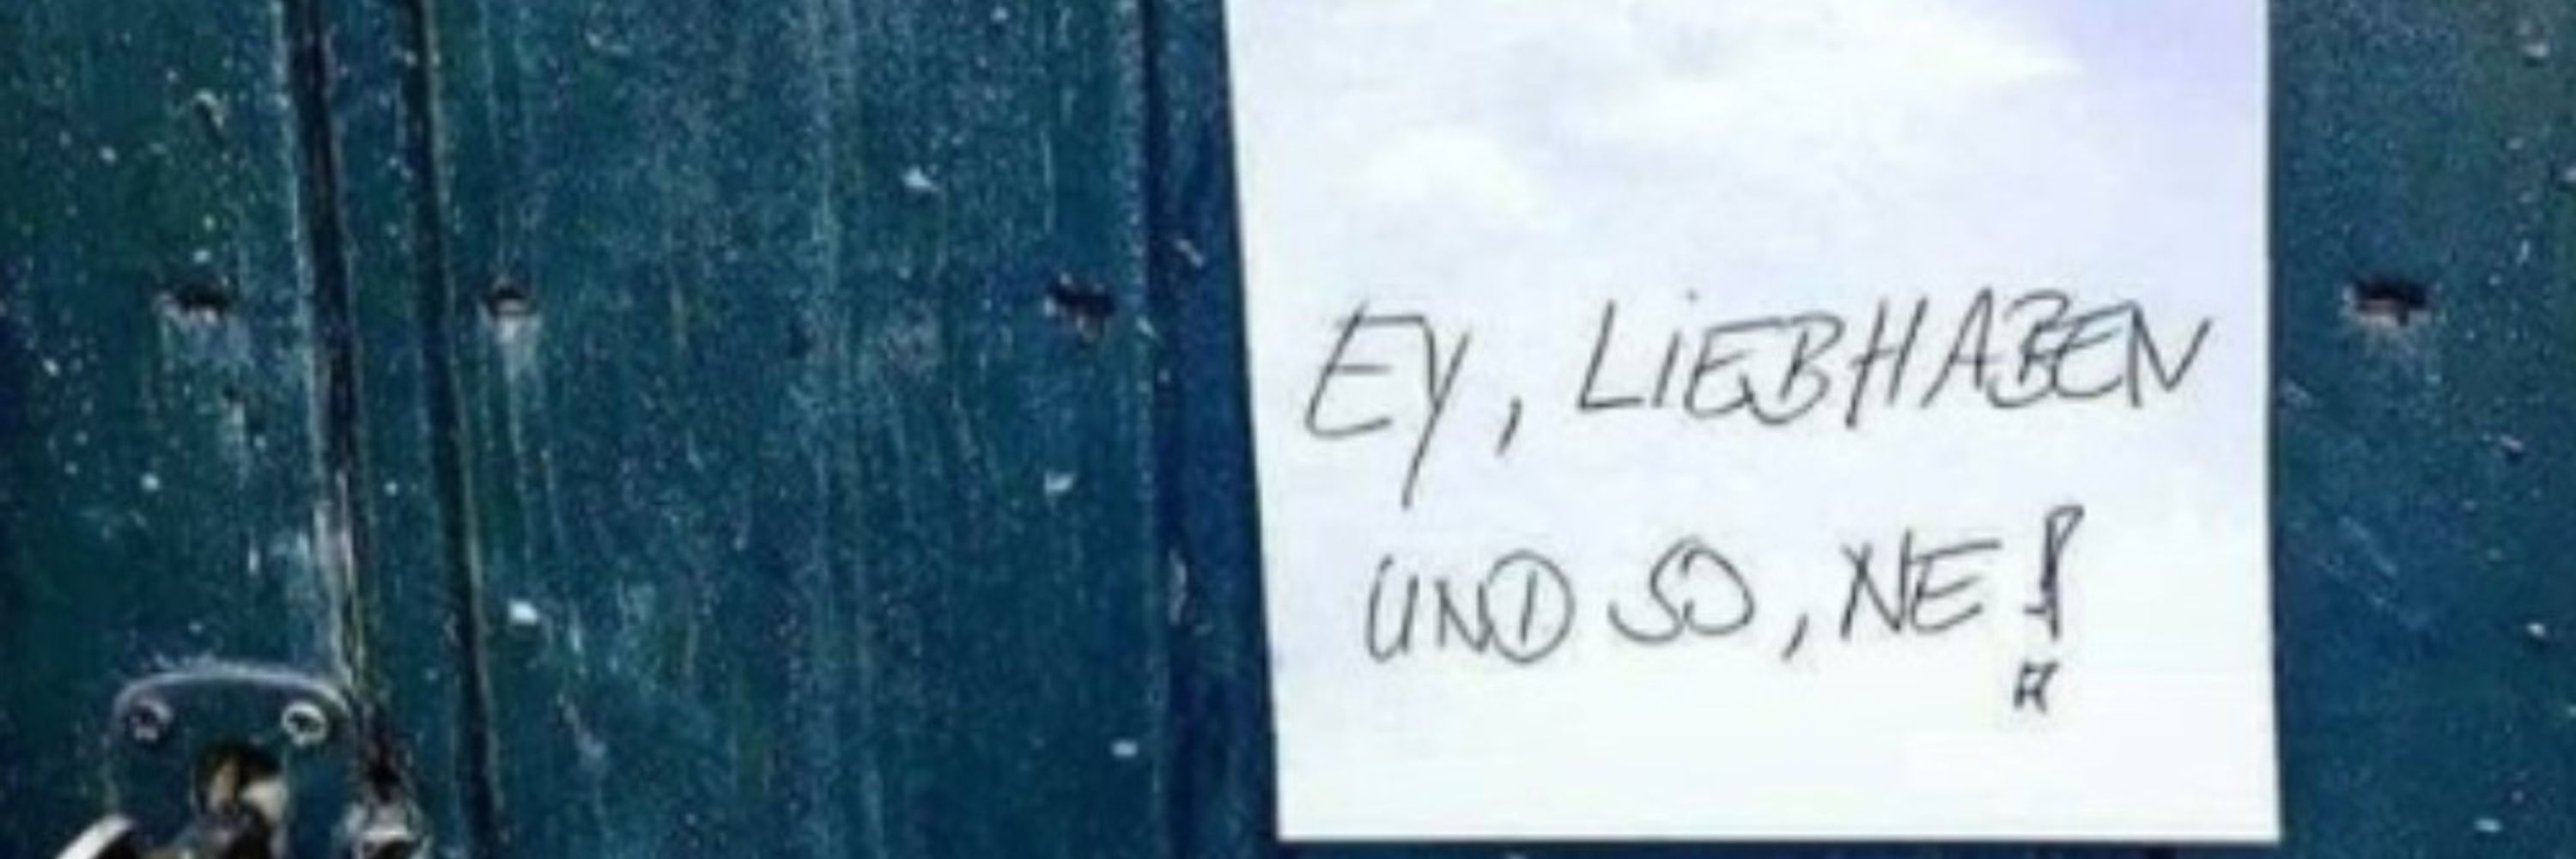 EY, LiEBHABEN
UND SO, NE!